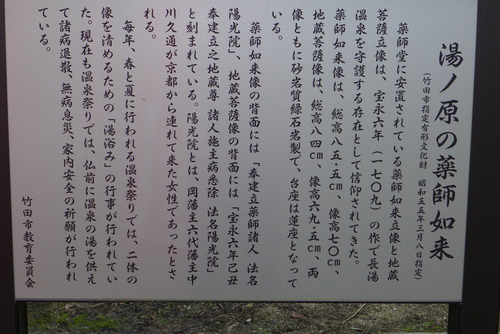 湯ノ原の薬師如来
（竹田市指定有形文化財　昭和五五年三月八日指定）
薬師堂に安置されている薬師如来立像と地蔵
菩薩立像は、宝永六年（一七〇九）の作で長湯
温泉を守護する存在として信仰されてきた。
薬師如来像は、総高八五・五㎝、像高七〇㎝、
地蔵菩薩像は、総高八四㎝、像高六九・五㎝、両
像ともに砂岩質緑石岩製で、台座は蓮座となって
いる。
薬師如来像の背面には「奉建立薬師諸人　法名
陽光院」、地蔵菩薩像の背面には「宝永六年己丑
奉建立之地蔵尊　諸人施主病悉除　法名陽光院」
と刻まれている。陽光院とは、岡藩主六代藩主中
川久通が京都から連れて来た女性であったとさ
れる。
毎年、春と夏に行われる温泉祭りでは、二体の
像を清めるための「湯浴み」の行事が行われてい
た。現在も温泉祭りでは、仏前に温泉の湯を供え
て諸病退散、無病息災、家内安全の祈願が行われ
ている。
竹田市教育委員会